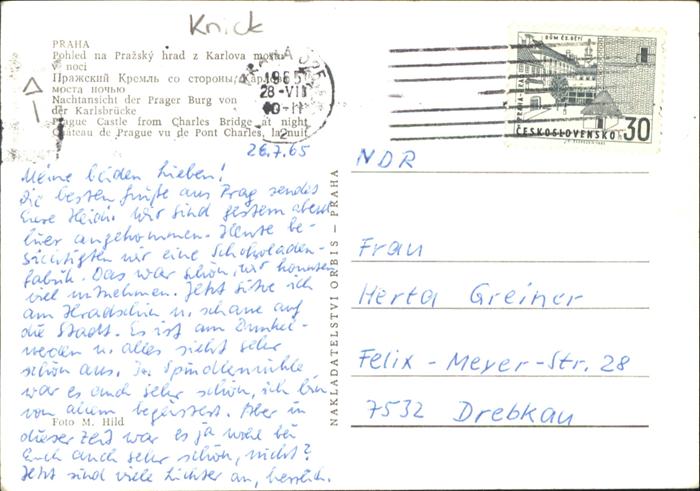 Knick
PRAHA
Pohled na Pražský hrad z Karlova mostu
v noci
Пражский Кремль со стороны Карлова
моста ночью
Nachtansicht der Prager Burg von
der Karlsbrücke
Prague Castle from Charles Bridge at night
Château de Prague vu de Pont Charles, la nuit
PRAHA
1965
28-VII
10-11
2
DŮM ČS. DĚTÍ
ČESKOSLOVENSKO 30
26.7.65
Meine beiden Lieben!
Die besten Grüße aus Prag sendet
Eure Heidi. Wir sind gestern abend
hier angekommen. Heute be-
sichtigten wir eine Schokoladen-
fabrik. Das war schön, wir konnten
viel mitnehmen. Jetzt sitze ich
am Hradschin u. schaue auf
die Stadt. Es ist am Dunkel-
werden u. alles sieht sehr
schön aus. In Spindlermühle
war es auch sehr schön, ich bin
von allem begeistert. Aber in
dieser Zeit war es ja wohl bei
Euch auch sehr schön, nicht?
Jetzt sind viele Lichter an, herrlich.
Foto M. Hild
NAKLADATELSTVÍ ORBIS – PRAHA
NDR
Frau
Herta Greiner
Felix - Meyer-Str. 28
7532 Drebkau